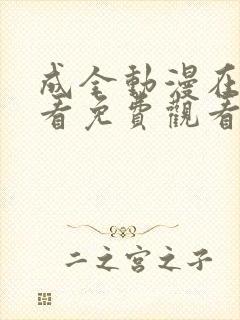 成全動漫在
看免費觀看
二之宮之子